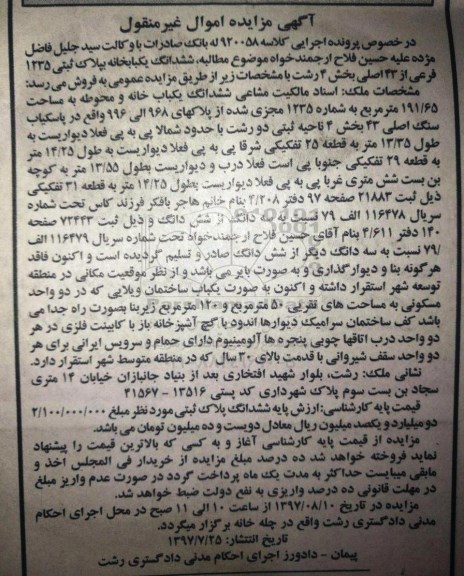 آگهی مزایده اموال غیرمنقول
در خصوص پرونده اجرایی کلاسه ۹۲۰۰۵۸ له بانک صادرات با وکالت سید جلیل فاضل
مژده علیه حسین فلاح ارجمندخواه موضوع مطالبه، ششدانگ یکبابخانه بپلاک ثبتی ۱۲۳۵
فرعی از ۴۳ اصلی بخش ۴ رشت با مشخصات زیر از طریق مزایده عمومی به فروش می رسد:
مشخصات ملک: اسناد مالکیت مشاعی ششدانگ یکباب خانه و محوطه به مساحت
۱۹۱/۶۵ مترمربع به شماره ۱۲۳۵ مجزی شده از پلاکهای ۹۶۸ الی ۹۹۶ واقع در پاسکیاب
سنگ اصلی ۴۳ بخش ۴ ناحیه ثبتی دو رشت با حدود شمالا پی به پی فعلا دیواریست به
طول ۱۳/۳۵ متر به قطعه ۲۵ تفکیکی شرقا پی به پی فعلا دیواریست به طول ۱۴/۲۵ متر
به قطعه ۲۹ تفکیکی جنوبا پی است فعلا درب و دیواریست بطول ۱۳/۵۵ متر به کوچه
بن بست شش متری غربا پی به پی فعلا دیواریست بطول ۱۴/۲۵ متر به قطعه ۳۱ تفکیکی
ذیل ثبت ۲۱۸۸۳ صفحه ۹۷ دفتر ۴/۲۰۸ بنام خانم هاجر بافکر فرزند کاس تحت شماره
سریال ۱۱۶۴۷۸ الف ۷۹ نسبت به سه دانگ از شش دانگ و ذیل ثبت ۷۲۴۴۳ صفحه
۱۴۰ دفتر ۴/۶۱۱ بنام آقای حسین فلاح ارجمندخواه تحت شماره سریال ۱۱۶۴۷۹ الف
/۷۹ نسبت به سه دانگ دیگر از شش دانگ صادر و تسلیم گردیده است و اکنون فاقد
هرگونه بنا و دیوارگذاری و به صورت بایر می باشد و از نظر موقعیت مکانی در منطقه
توسعه شهر استقرار داشته و اکنون به صورت یکباب ساختمان ویلایی که در دو واحد
مسکونی به مساحت های تقریبی ۵۰ مترمربع و ۱۲۰ مترمربع زیربنا بصورت راه جدا می
باشد کف ساختمان سرامیک دیوارها اندود با گچ آشپزخانه باز با کابینت فلزی در هر
دو واحد درب اتاقها چوبی پنجره ها آلومینیوم دارای حمام و سرویس ایرانی برای هر
دو واحد سقف شیروانی با قدمت بالای ۳۰ سال که در منطقه متوسط شهر استقرار دارد.
نشانی ملک: رشت، بلوار شهید افتخاری بعد از بنیاد جانبازان خیابان ۱۴ متری
سجاد بن بست سوم پلاک شهرداری کد پستی ۱۳۵۱۶ - ۴۱۵۶۷
قیمت پایه کارشناسی: ارزش پایه ششدانگ پلاک ثبتی مورد نظر مبلغ ۲/۱۰۰/۰۰۰/۰۰۰
دو میلیارد و یکصد میلیون ریال معادل دویست و ده میلیون تومان می باشد.
مزایده از قیمت پایه کارشناسی آغاز و به کسی که بالاترین قیمت را پیشنهاد
نماید فروخته خواهد شد ده درصد مبلغ مزایده از خریدار فی المجلس اخذ و
مابقی میبایست حداکثر به مدت یک ماه پرداخت گردد در صورت عدم واریز مبلغ
در مهلت قانونی ده درصد واریزی به نفع دولت ضبط خواهد شد.
مزایده در تاریخ ۱۳۹۷/۰۸/۱۰ از ساعت ۱۰ الی ۱۱ صبح در محل اجرای احکام
مدنی دادگستری رشت واقع در چله خانه برگزار میگردد.
تاریخ انتشار: ۱۳۹۷/۷/۲۵
پیمان - دادورز اجرای احکام مدنی دادگستری رشت